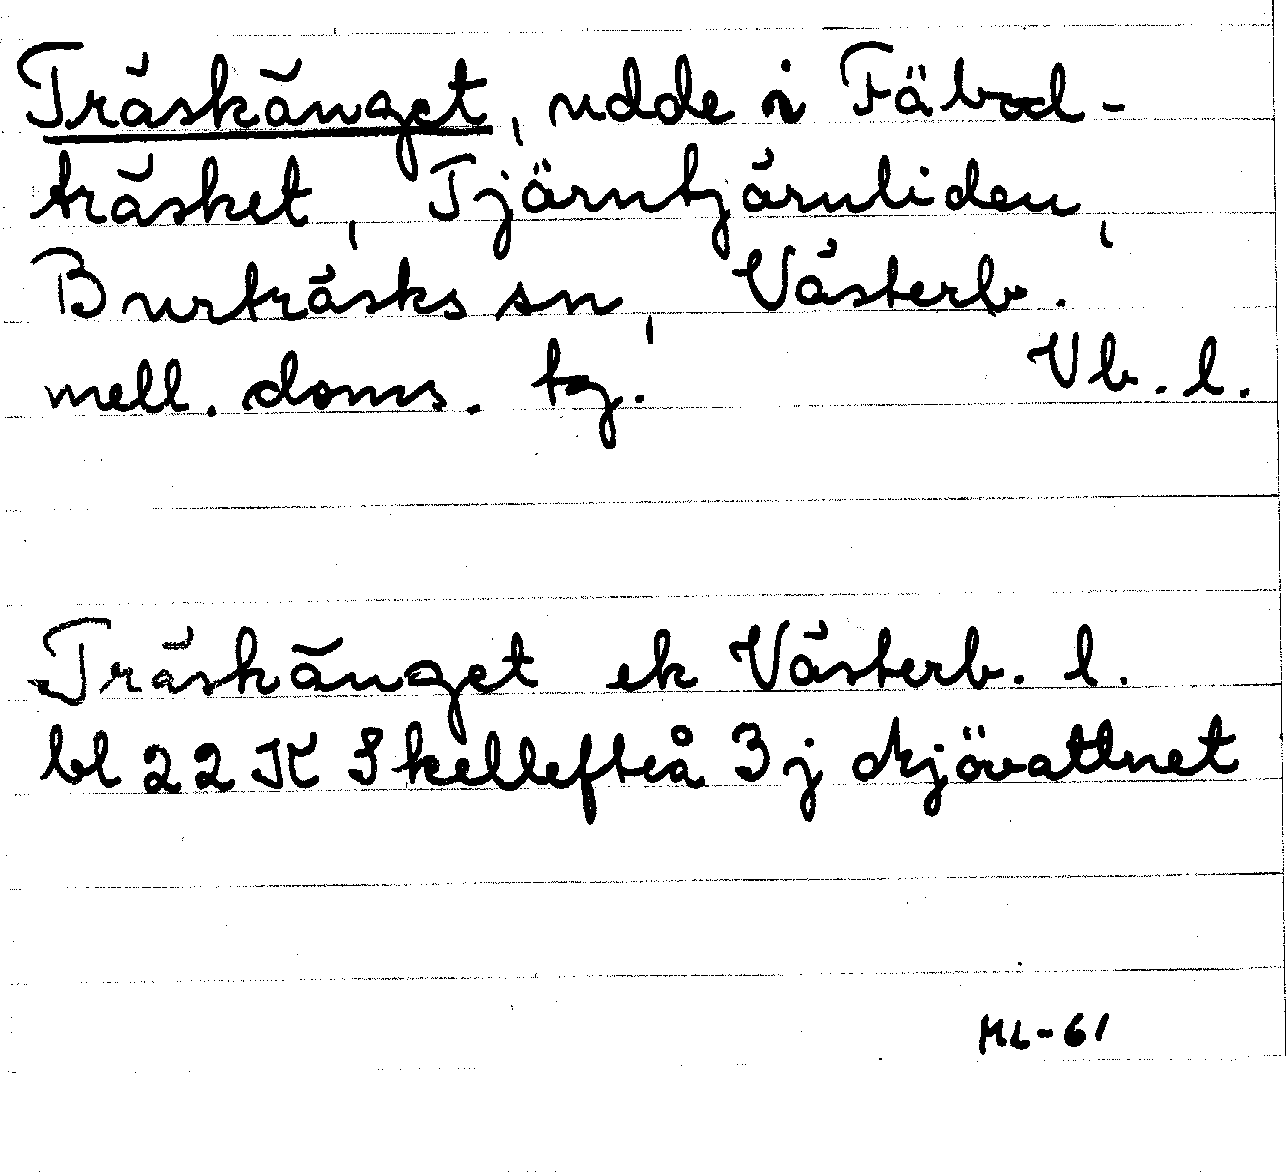 Träskänget, udde i Fäbod-
träsket, Tjärntjärnliden,
Burträsks sn, Västerb.
mell. doms. tg. Vb. l.
Träskänget ek Västerb. l.
bl 22 K Skellefteå 3j
ML-61